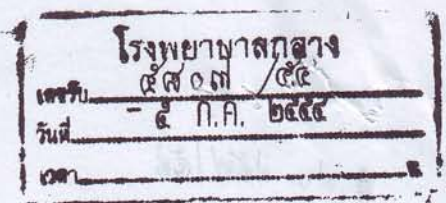 โรงพยาบาลกลาง
เลขรับ ๕๘๐๗ /๕๔
วันที่ - ๕ ก.ค. ๒๕๕๔
เวลา น.